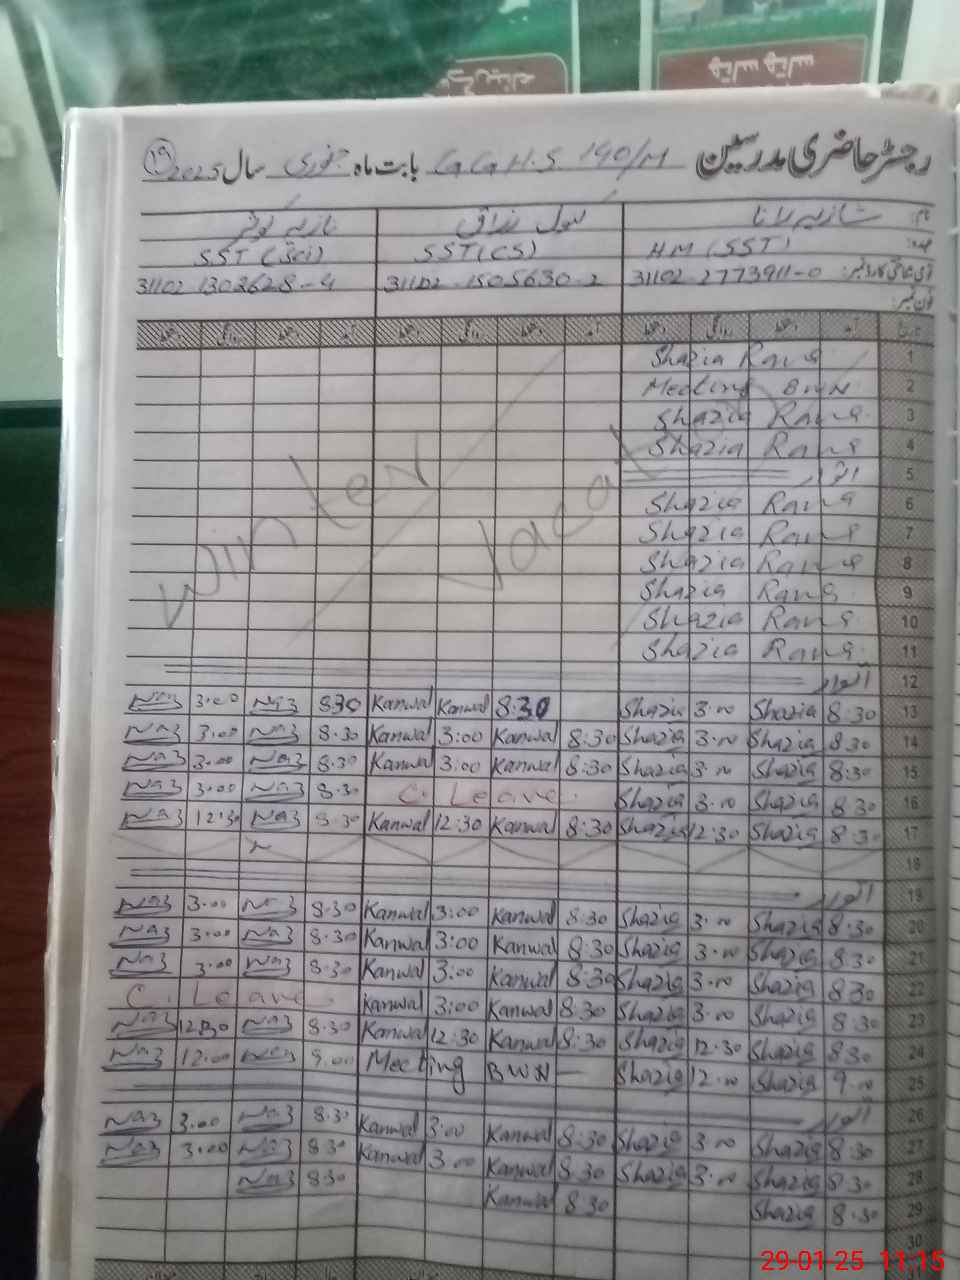 رجسٹر حاضری مدرسین G.G.H.S. 140/M بابت ماہ جنوری سال 2025 ١٩
نام: شازیہ رانا کنول رزاق نازیہ کوثر
عہدہ: HM (SST) SST(CS) SST (Sci)
31102-2773911-0 31102-1505630-2 31102-1303628-4
فون نمبر:
1 Shazia Rana
2 Meeting BWN
3 Shazia Rana
4 Shazia Rana
5 اتوار
6 Shazia Rana
7 Shazia Rana
8 Shazia Rana
9 Shazia Rana
10 Shazia Rana
11 Shazia Rana
Winter Vacat
12 اتوار
Naz 3:00 Naz 8:30 Kanwal Kanwal 8:30 Shazia 3:00 Shazia 8:30 13
Naz 3:00 Naz 8:30 Kanwal 3:00 Kanwal 8:30 Shazia 3:00 Shazia 8:30 14
Naz 3:00 Naz 8:30 Kanwal 3:00 Kanwal 8:30 Shazia 3:00 Shazia 8:30 15
Naz 3:00 Naz 8:30 C. Leave Shazia 3:00 Shazia 8:30 16
Naz 12:30 Naz 8:30 Kanwal 12:30 Kanwal 8:30 Shazia 12:30 Shazia 8:30 17
18
19 اتوار
Naz 3:00 Naz 8:30 Kanwal 3:00 Kanwal 8:30 Shazia 3:00 Shazia 8:30 20
Naz 3:00 Naz 8:30 Kanwal 3:00 Kanwal 8:30 Shazia 3:00 Shazia 8:30 21
Naz 3:00 Naz 8:30 Kanwal 3:00 Kanwal 8:30 Shazia 3:00 Shazia 8:30 22
C. Leave Kanwal 3:00 Kanwal 8:30 Shazia 3:00 Shazia 8:30 23
Naz 12:30 Naz 8:30 Kanwal 12:30 Kanwal 8:30 Shazia 12:30 Shazia 8:30 24
Naz 12:00 Naz 9:00 Meeting BWN — Shazia 12:00 Shazia 9:00 25
26 اتوار
Naz 3:00 Naz 8:30 Kanwal 3:00 Kanwal 8:30 Shazia 3:00 Shazia 8:30 27
Naz 3:00 Naz 8:30 Kanwal 3:00 Kanwal 8:30 Shazia 3:00 Shazia 8:30 28
Naz 8:30 Kanwal 8:30 Shazia 8:30 29
30
29-01-25 11:15